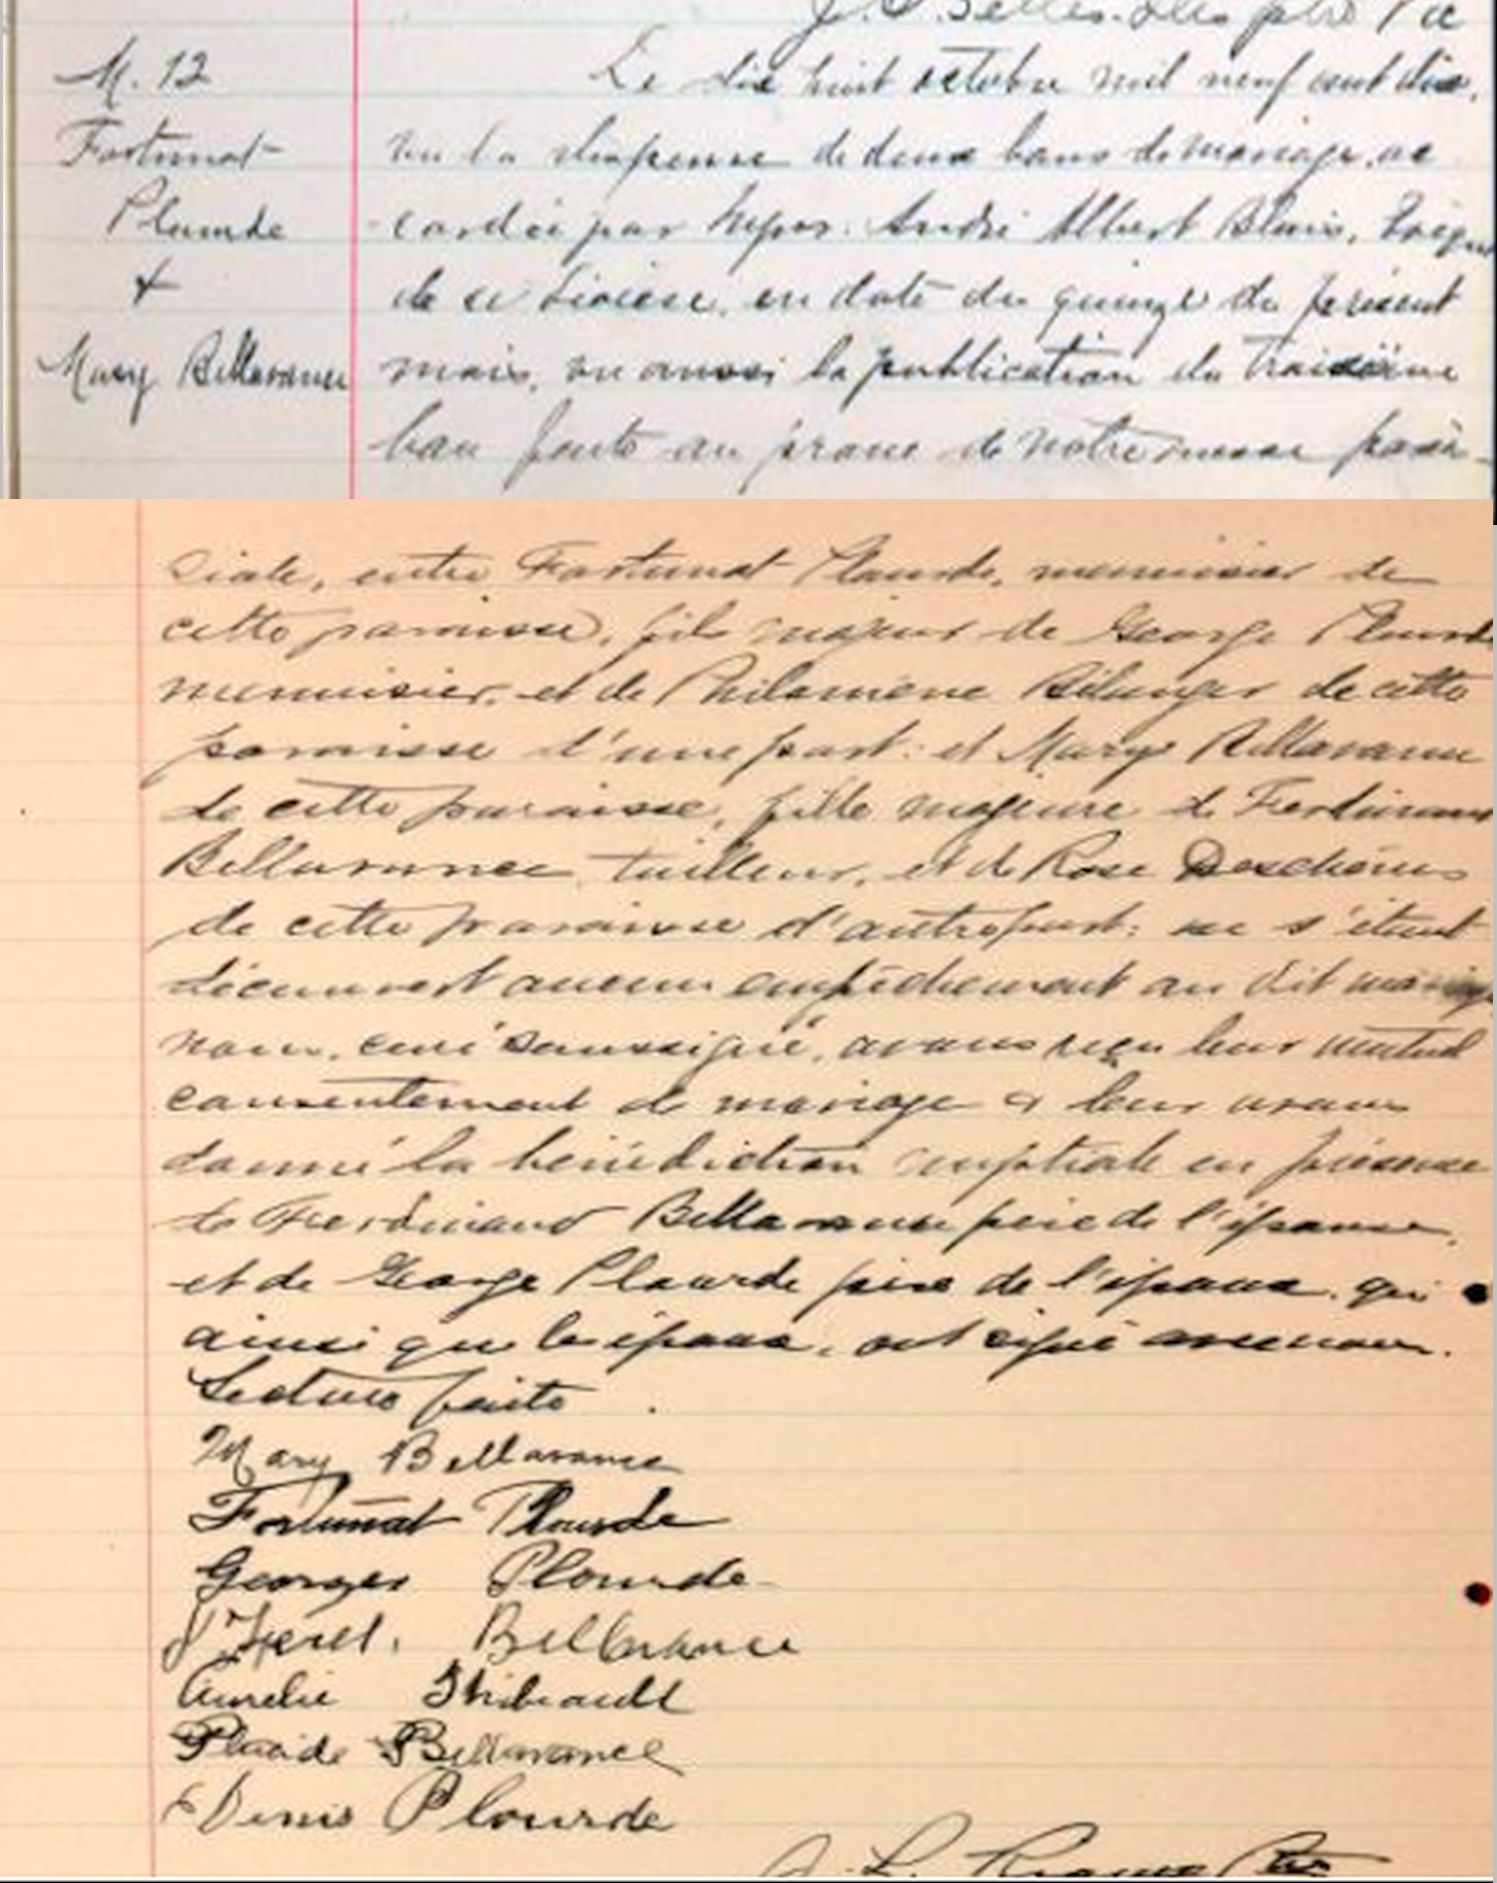 J.
M. 12
Le dix huit octobre mil neuf cent dix,
Fortunat
vu la dispense de deux bans de mariage, ac
Plourde
-cordée par Mgr. André Albert Blais, Evêque
&
de ce diocèse, en date du quinze du présent
Mary Bellavance
mois, vu aussi la publication du troisième
ban faite au prône de notre messe parois-
siale, entre Fortunat Plourde, menuisier de
cette paroisse, fils majeur de George Plourde
menuisier, et de Philomène Bélanger de cette
paroisse d'une part: et Mary Bellavance
de cette paroisse, fille majeure de Ferdinand
Bellavance tailleur, et de Rose Deschênes
de cette paroisse d'autre part: ne s'étant
découvert aucun empêchement au dit mariage
nous, curé soussigné, avons reçu leur mutuel
consentement de mariage & leur avons
donné la bénédiction nuptiale en présence
de Ferdinand Bellavance père de l'épouse,
et de George Plourde père de l'époux, qui
ainsi que les époux, ont signé avec nous.
Lecture faite
Mary Bellavance
Fortunat Plourde
Georges Plourde
Bellavance
Aurelie Thibeault
Placide Bellavance
Denis Plourde
J. L.